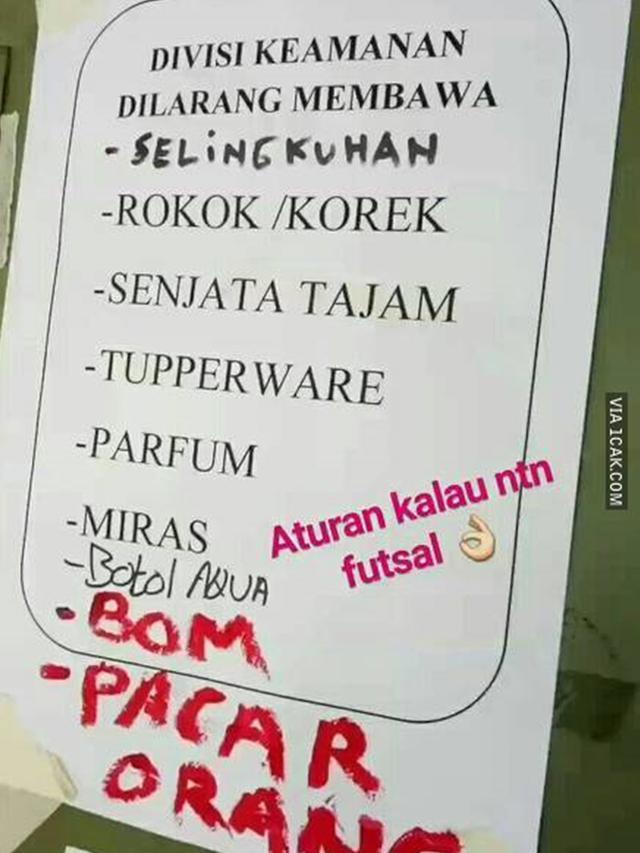 DIVISI KEAMANAN
DILARANG MEMBAWA
- SELiNGKUHAN
-ROKOK /KOREK
-SENJATA TAJAM
-TUPPERWARE
-PARFUM
-MIRAS
-Botol AQUA
-BOM
-PACAR
ORANG
Aturan kalau ntn
futsal 👌
VIA 1CAK.COM